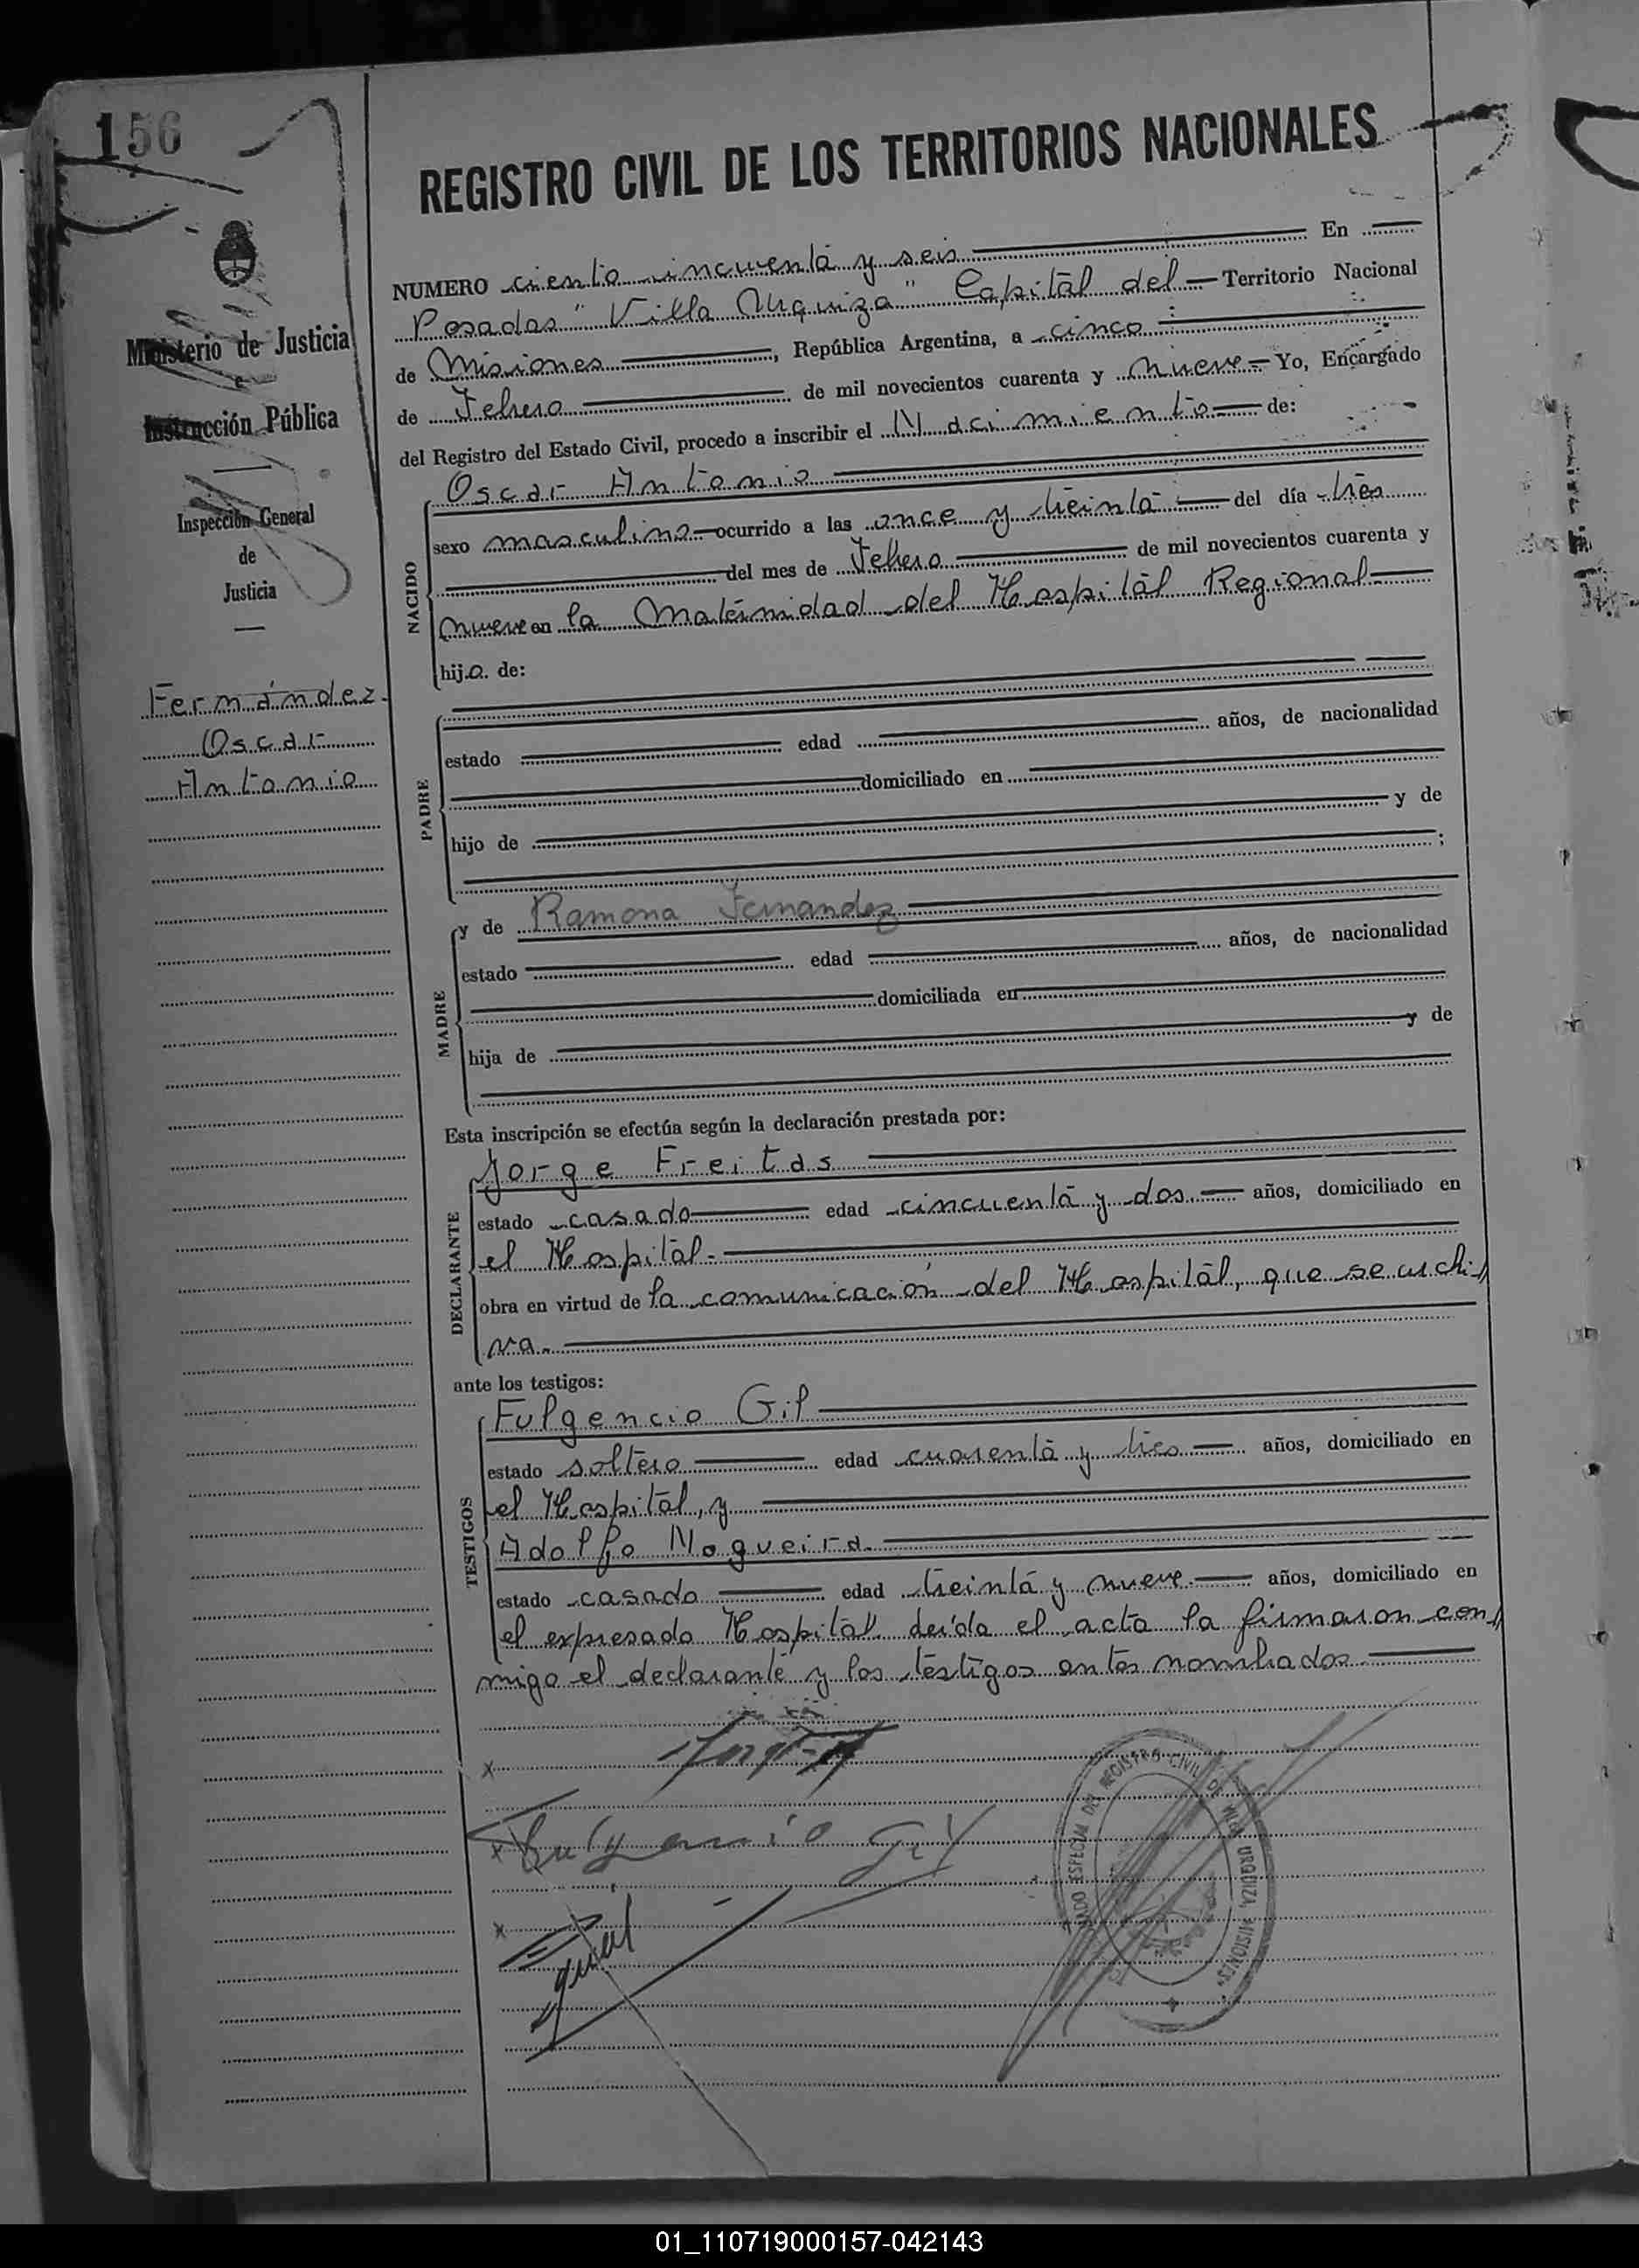 156
REGISTRO CIVIL DE LOS TERRITORIOS NACIONALES
Ministerio de Justicia
Instrucción Pública
Inspección General
de
Justicia
Fernández
Oscar
Antonio
NUMERO ciento cincuenta y seis En
Posadas "Villa Urquiza" Capital del Territorio Nacional
de Misiones, República Argentina, a cinco
de Febrero de mil novecientos cuarenta y nueve Yo, Encargado
del Registro del Estado Civil, procedo a inscribir el Nacimiento de:
NACIDO
Oscar Antonio
sexo masculino ocurrido a las once y treinta del día tres
del mes de Febrero de mil novecientos cuarenta y
nueve en la Maternidad del Hospital Regional
hijo de:
PADRE
estado edad años, de nacionalidad
domiciliado en
hijo de y de
;
MADRE
y de Ramona Fernandez
estado edad años, de nacionalidad
domiciliada en
hija de y de
Esta inscripción se efectúa según la declaración prestada por:
DECLARANTE
Jorge Freitas
estado casado edad cincuenta y dos años, domiciliado en
el Hospital.
obra en virtud de la comunicación del Hospital, que se archi-
va.
ante los testigos:
TESTIGOS
Fulgencio Gil
estado soltero edad cuarenta y tres años, domiciliado en
el Hospital, y
Adolfo Nogueira.
estado casado edad treinta y nueve. años, domiciliado en
el expresado Hospital. Leída el acta la firmaron con-
migo el declarante y los testigos antes nombrados.
x
x Fulgencio Gil
x
REGISTRO CIVIL DE VILLA URQUIZA, MISIONES
01_110719000157-042143